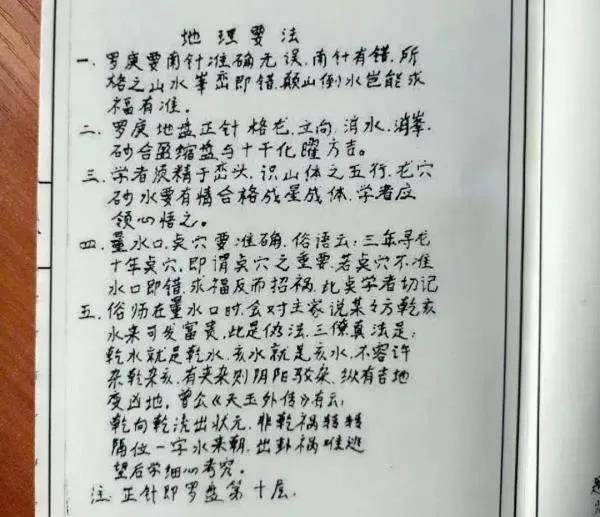 地理要法
一、罗庚要南针准确无误,南针有错,所
格之山水峯峦即错,颠山倒水岂能求
福有准。
二、罗庚地盘正针格龙,立向,消水,消峯.
砂合盈缩盘与十干化曜方吉。
三、学者须精于峦头,识山体之五行,龙穴
砂水要有情合格成星成体,学者应
领心悟之。
四、量水口,点穴要准确,俗语云:三年寻龙
十年点穴,即谓点穴之重要.若点穴不准
水口即错,求福反而招祸,此点学者切记
五、俗师在量水口时,会对主家说某々方乾亥
水来可发富贵,此是伪法,三僚真法是:
乾水就是乾水,亥水就是亥水,不容许
杂乾杂亥,有夹杂则阴阳驳杂,纵有吉地
变凶地,曾公《天玉外传》有云:
乾向乾流出状元,非乾祸转转
隔位一字水来朝,出卦祸难逃
望后学细心考究。
注:正针即罗盘第十层.